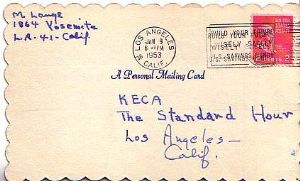 M Lange
1864 Yosemite
L.A-41-Calif
LOS ANGELES
JAN 9
6-PM
1953
CALIF.
BUILD YOUR FUTURE
WISELY
U.S. SAVINGS BONDS
A Personal Mailing Card
KECA
The Standard Hour
Los Angeles-
Calif.